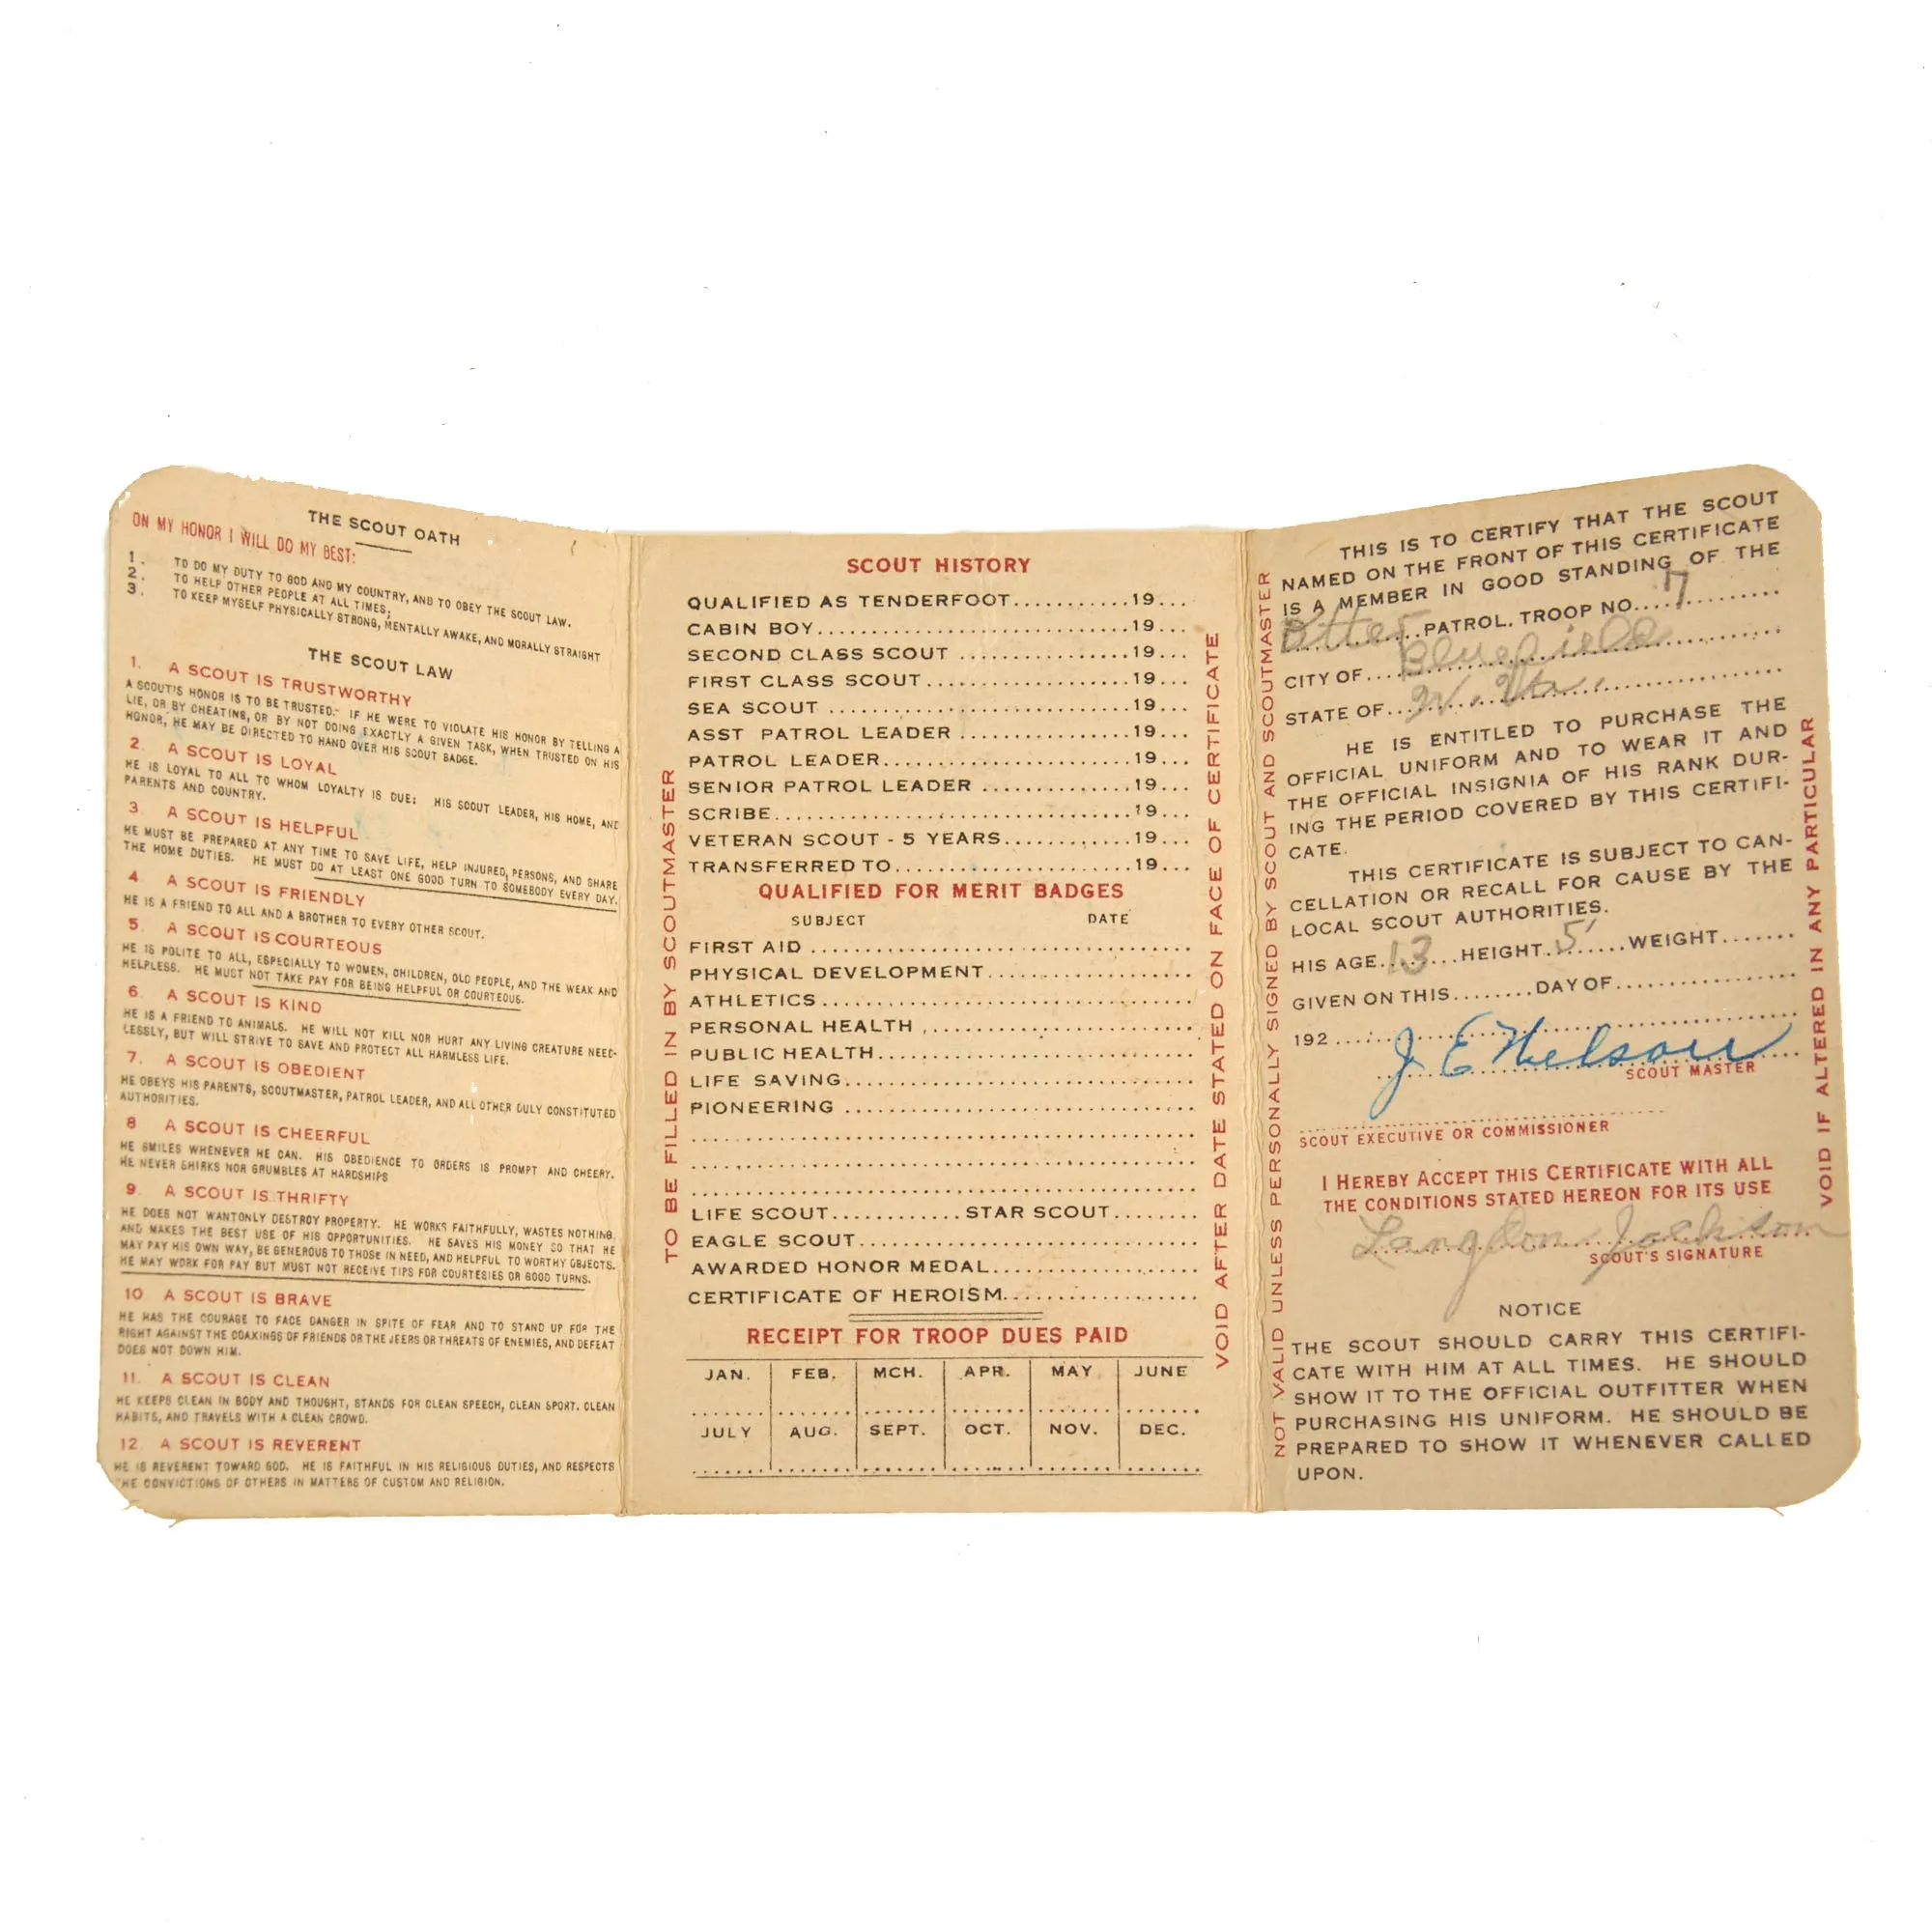 THE SCOUT OATH
ON MY HONOR I WILL DO MY BEST:
1. TO DO MY DUTY TO GOD AND MY COUNTRY, AND TO OBEY THE SCOUT LAW.
2. TO HELP OTHER PEOPLE AT ALL TIMES;
3. TO KEEP MYSELF PHYSICALLY STRONG, MENTALLY AWAKE, AND MORALLY STRAIGHT
THE SCOUT LAW
1. A SCOUT IS TRUSTWORTHY
A SCOUT'S HONOR IS TO BE TRUSTED. IF HE WERE TO VIOLATE HIS HONOR BY TELLING A
LIE, OR BY CHEATING, OR BY NOT DOING EXACTLY A GIVEN TASK, WHEN TRUSTED ON HIS
HONOR, HE MAY BE DIRECTED TO HAND OVER HIS SCOUT BADGE.
2. A SCOUT IS LOYAL
HE IS LOYAL TO ALL TO WHOM LOYALTY IS DUE; HIS SCOUT LEADER, HIS HOME, AND
PARENTS AND COUNTRY.
3 A SCOUT IS HELPFUL
HE MUST BE PREPARED AT ANY TIME TO SAVE LIFE, HELP INJURED, PERSONS, AND SHARE
THE HOME DUTIES. HE MUST DO AT LEAST ONE GOOD TURN TO SOMEBODY EVERY DAY.
4 A SCOUT IS FRIENDLY
HE IS A FRIEND TO ALL AND A BROTHER TO EVERY OTHER SCOUT.
5. A SCOUT IS COURTEOUS
HE IS POLITE TO ALL, ESPECIALLY TO WOMEN, CHILDREN, OLD PEOPLE, AND THE WEAK AND
HELPLESS. HE MUST NOT TAKE PAY FOR BEING HELPFUL OR COURTEOUS.
6 A SCOUT IS KIND
HE IS A FRIEND TO ANIMALS. HE WILL NOT KILL NOR HURT ANY LIVING CREATURE NEED-
LESSLY, BUT WILL STRIVE TO SAVE AND PROTECT ALL HARMLESS LIFE.
7. A SCOUT IS OBEDIENT
HE OBEYS HIS PARENTS, SCOUTMASTER, PATROL LEADER, AND ALL OTHER DULY CONSTITUTED
AUTHORITIES.
8 A SCOUT IS CHEERFUL
HE SMILES WHENEVER HE CAN. HIS OBEDIENCE TO ORDERS IS PROMPT AND CHEERY.
HE NEVER SHIRKS NOR GRUMBLES AT HARDSHIPS
9. A SCOUT IS THRIFTY
HE DOES NOT WANTONLY DESTROY PROPERTY. HE WORKS FAITHFULLY, WASTES NOTHING,
AND MAKES THE BEST USE OF HIS OPPORTUNITIES. HE SAVES HIS MONEY SO THAT HE
MAY PAY HIS OWN WAY, BE GENEROUS TO THOSE IN NEED, AND HELPFUL TO WORTHY OBJECTS.
HE MAY WORK FOR PAY BUT MUST NOT RECEIVE TIPS FOR COURTESIES OR GOOD TURNS.
10 A SCOUT IS BRAVE
HE HAS THE COURAGE TO FACE DANGER IN SPITE OF FEAR AND TO STAND UP FOR THE
RIGHT AGAINST THE COAXINGS OF FRIENDS OR THE JEERS OR THREATS OF ENEMIES, AND DEFEAT
DOES NOT DOWN HIM.
11. A SCOUT IS CLEAN
HE KEEPS CLEAN IN BODY AND THOUGHT, STANDS FOR CLEAN SPEECH, CLEAN SPORT. CLEAN
HABITS, AND TRAVELS WITH A CLEAN CROWD.
12. A SCOUT IS REVERENT
HE IS REVERENT TOWARD GOD. HE IS FAITHFUL IN HIS RELIGIOUS DUTIES, AND RESPECTS
THE CONVICTIONS OF OTHERS IN MATTERS OF CUSTOM AND RELIGION.
TO BE FILLED IN BY SCOUTMASTER
SCOUT HISTORY
QUALIFIED AS TENDERFOOT...........19...
CABIN BOY..............................19...
SECOND CLASS SCOUT ................19...
FIRST CLASS SCOUT...................19...
SEA SCOUT .............................19...
ASST PATROL LEADER ................19...
PATROL LEADER.......................19...
SENIOR PATROL LEADER .............19...
SCRIBE..................................19...
VETERAN SCOUT - 5 YEARS............19...
TRANSFERRED TO......................19...
QUALIFIED FOR MERIT BADGES
SUBJECT DATE
FIRST AID .....................................
PHYSICAL DEVELOPMENT....................
ATHLETICS....................................
PERSONAL HEALTH ..........................
PUBLIC HEALTH...............................
LIFE SAVING..................................
PIONEERING ..................................
LIFE SCOUT............STAR SCOUT........
EAGLE SCOUT.................................
AWARDED HONOR MEDAL....................
CERTIFICATE OF HEROISM...................
RECEIPT FOR TROOP DUES PAID
JAN. FEB. MCH. APR. MAY JUNE
JULY AUG. SEPT. OCT. NOV. DEC.
VOID AFTER DATE STATED ON FACE OF CERTIFICATE
NOT VALID UNLESS PERSONALLY SIGNED BY SCOUT AND SCOUTMASTER
THIS IS TO CERTIFY THAT THE SCOUT
NAMED ON THE FRONT OF THIS CERTIFICATE
IS A MEMBER IN GOOD STANDING OF THE
PATROL. TROOP NO....7.........
CITY OF....Bluefield
STATE OF...W. Va.
HE IS ENTITLED TO PURCHASE THE
OFFICIAL UNIFORM AND TO WEAR IT AND
THE OFFICIAL INSIGNIA OF HIS RANK DUR-
ING THE PERIOD COVERED BY THIS CERTIFI-
CATE.
THIS CERTIFICATE IS SUBJECT TO CAN-
CELLATION OR RECALL FOR CAUSE BY THE
LOCAL SCOUT AUTHORITIES.
HIS AGE 13 HEIGHT 5' WEIGHT.......
GIVEN ON THIS........DAY OF.................
192
J E Nelson
SCOUT MASTER
SCOUT EXECUTIVE OR COMMISSIONER
I HEREBY ACCEPT THIS CERTIFICATE WITH ALL
THE CONDITIONS STATED HEREON FOR ITS USE
Langdon Jackson
SCOUT'S SIGNATURE
NOTICE
THE SCOUT SHOULD CARRY THIS CERTIFI-
CATE WITH HIM AT ALL TIMES. HE SHOULD
SHOW IT TO THE OFFICIAL OUTFITTER WHEN
PURCHASING HIS UNIFORM. HE SHOULD BE
PREPARED TO SHOW IT WHENEVER CALLED
UPON.
VOID IF ALTERED IN ANY PARTICULAR